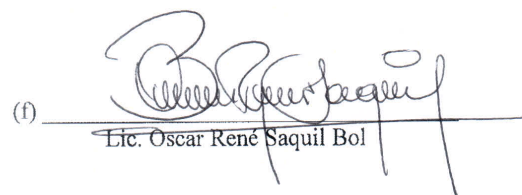 (f)
Lic. Oscar René Saquil Bol